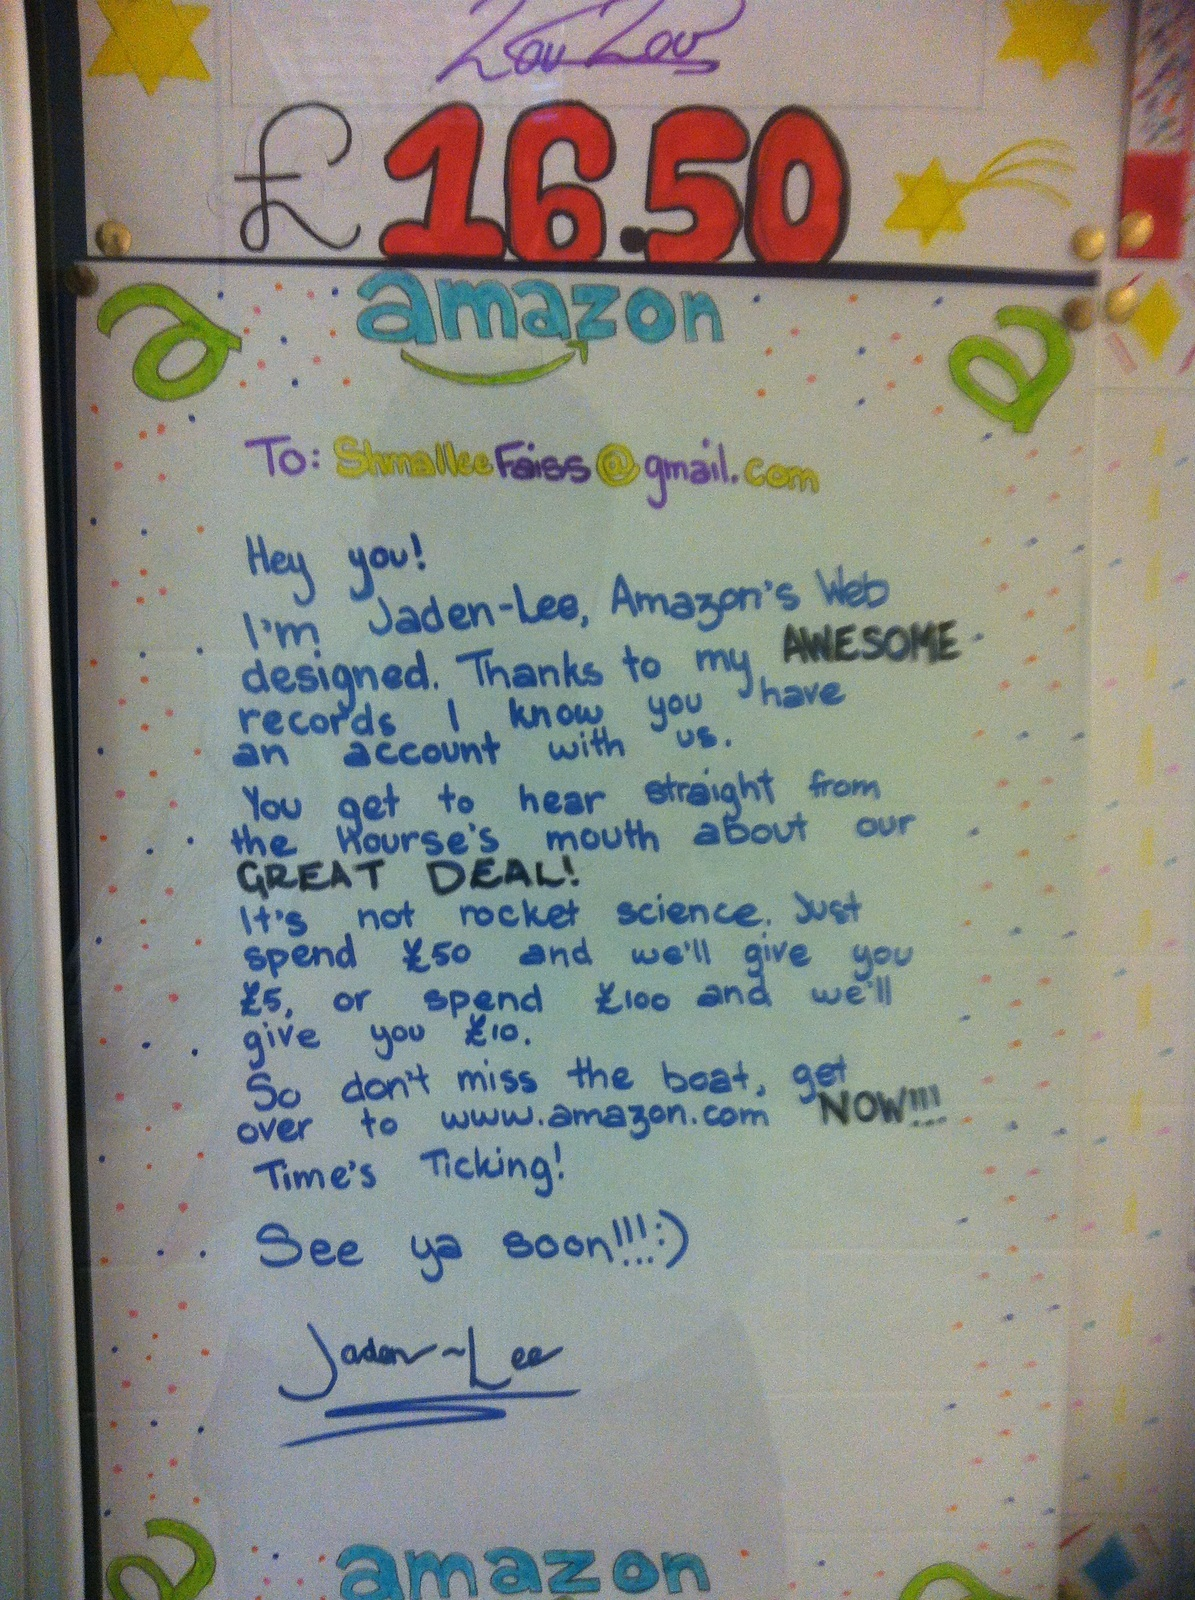 Lou Lou
£16.50
amazon
a
a
To: ShmalleeFaiss@gmail.com
Hey you!
I'm Jaden-Lee, Amazon's Web
designed. Thanks to my AWESOME
records I know you have
an account with us.
You get to hear straight from
the Hourse's mouth about our
GREAT DEAL!
It's not rocket science. Just
spend £50 and we'll give you
£5, or spend £100 and we'll
give you £10.
So don't miss the boat, get
over to www.amazon.com NOW!!!
Time's Ticking!
See ya soon!!!:)
Jaden~Lee
amazon
a